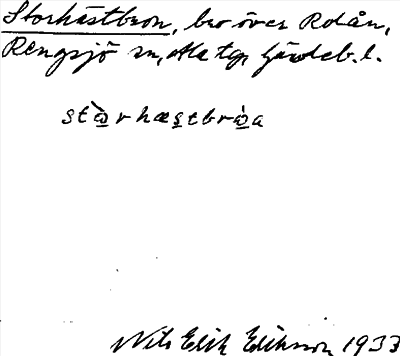 Storhästbron, bro över Rolån,
Rengsjö sn, Ala tg, Gävleb. l.
stὼrhæstbrὼa
Nils Erik Eriksson 1933